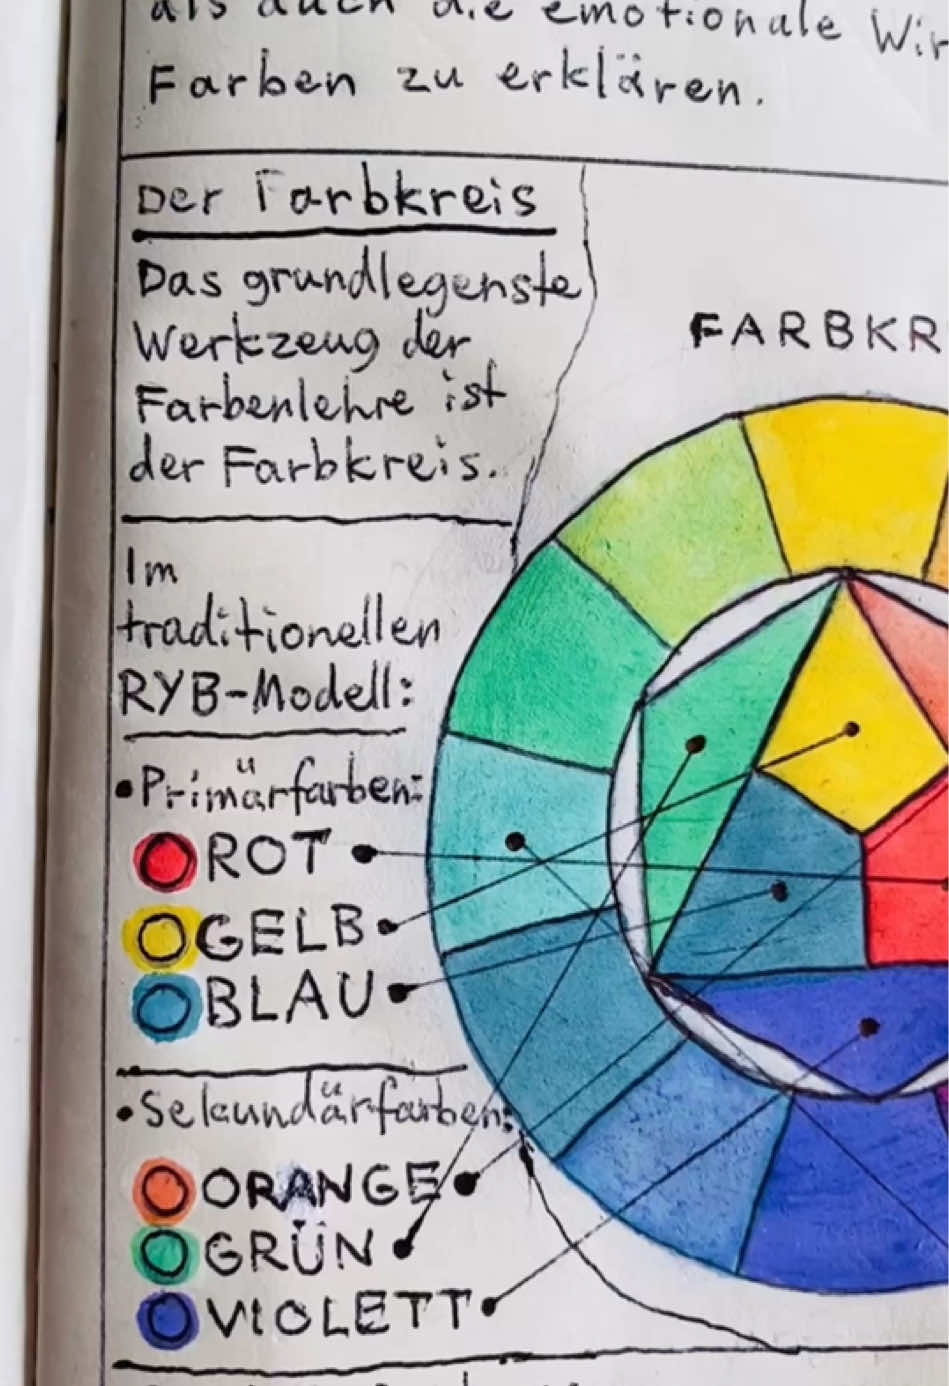 als auch die emotionale
Farben zu erklären.
Der Farbkreis
Das grundlegenste
Werkzeug der
Farbenlehre ist
der Farbkreis.
FARBKR
Im
traditionellen
RYB-Modell:
• Primärfarben:
ROT
GELB
BLAU
• Sekundärfarben:
ORANGE
GRÜN
VIOLETT